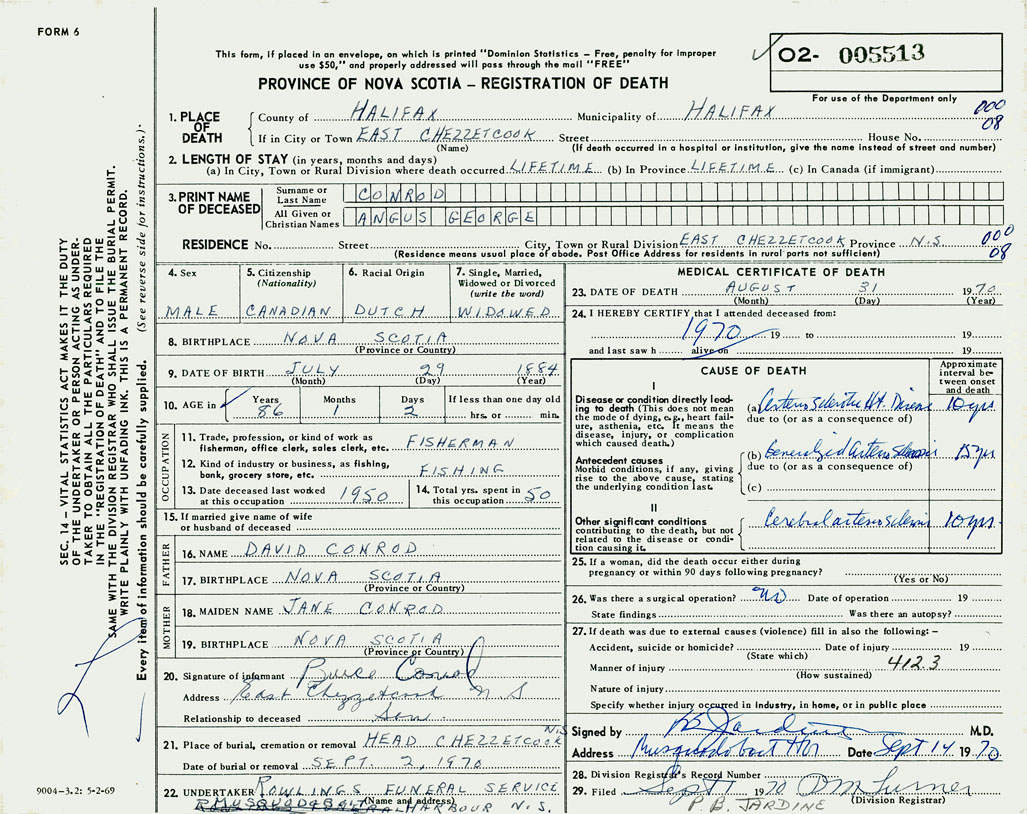 FORM 6
This form, if placed in an envelope, on which is printed "Dominion Statistics – Free, penalty for improper
use $50," and properly addressed will pass through the mail "FREE"
PROVINCE OF NOVA SCOTIA – REGISTRATION OF DEATH
02- 005513
For use of the Department only
SEC. 14 – VITAL STATISTICS ACT MAKES IT THE DUTY
OF THE UNDERTAKER OR PERSON ACTING AS UNDER-
TAKER TO OBTAIN ALL THE PARTICULARS REQUIRED
IN THE "REGISTRATION OF DEATH" AND TO FILE THE
SAME WITH THE DIVISION REGISTRAR WHO SHALL ISSUE THE BURIAL PERMIT.
WRITE PLAINLY WITH UNFADING INK. THIS IS A PERMANENT RECORD.
Every item of information should be carefully supplied. (See reverse side for instructions.)
1. PLACE OF DEATH
County of HALIFAX Municipality of HALIFAX 000
If in City or Town EAST CHEZZETCOOK Street House No. 08
(Name) (If death occurred in a hospital or institution, give the name instead of street and number)
2. LENGTH OF STAY (in years, months and days)
(a) In City, Town or Rural Division where death occurred LIFETIME (b) In Province LIFETIME (c) In Canada (if immigrant)
3. PRINT NAME OF DECEASED
Surname or Last Name CONROD
All Given or Christian Names ANGUS GEORGE
RESIDENCE No. Street City, Town or Rural Division EAST CHEZZETCOOK Province N.S. 000 08
(Residence means usual place of abode. Post Office Address for residents in rural parts not sufficient)
4. Sex
MALE
5. Citizenship
(Nationality)
CANADIAN
6. Racial Origin
DUTCH
7. Single, Married,
Widowed or Divorced
(write the word)
WIDOWED
8. BIRTHPLACE NOVA SCOTIA
(Province or Country)
9. DATE OF BIRTH JULY 29 1884
(Month) (Day) (Year)
10. AGE in
Years Months Days If less than one day old
86 1 2 hrs. or min.
OCCUPATION
11. Trade, profession, or kind of work as
fisherman, office clerk, sales clerk, etc. FISHERMAN
12. Kind of industry or business, as fishing,
bank, grocery store, etc. FISHING
13. Date deceased last worked
at this occupation 1950
14. Total yrs. spent in
this occupation 50
15. If married give name of wife
or husband of deceased
FATHER
16. NAME DAVID CONROD
17. BIRTHPLACE NOVA SCOTIA
(Province or Country)
MOTHER
18. MAIDEN NAME JANE CONROD
19. BIRTHPLACE NOVA SCOTIA
(Province or Country)
20. Signature of informant Bruce Conrod
Address East Chezzetcook N S
Relationship to deceased Son
21. Place of burial, cremation or removal HEAD CHEZZETCOOK N.S
Date of burial or removal SEPT. 2, 1970
22. UNDERTAKER ROWLINGS FUNERAL SERVICE
(Name and address)
HARBOUR N.S.
9004-3.2: 5-2-69
MEDICAL CERTIFICATE OF DEATH
23. DATE OF DEATH AUGUST 31 1970
(Month) (Day) (Year)
24. I HEREBY CERTIFY that I attended deceased from:
1970 19 to 19
and last saw h alive on 19
CAUSE OF DEATH
Approximate
interval be-
tween onset
and death
I
Disease or condition directly lead-
ing to death (This does not mean
the mode of dying, e.g., heart fail-
ure, asthenia, etc. It means the
disease, injury, or complication
which caused death.)
(a) Arteriosclerotic Ht. Disease 10 yrs
due to (or as a consequence of)
Antecedent causes
Morbid conditions, if any, giving
rise to the above cause, stating
the underlying condition last.
(b) Generalized Arteriosclerosis 15 yrs
due to (or as a consequence of)
(c)
II
Other significant conditions
contributing to the death, but not
related to the disease or condi-
tion causing it.
Cerebral arteriosclerosis 10 yrs.
25. If a woman, did the death occur either during
pregnancy or within 90 days following pregnancy?
(Yes or No)
26. Was there a surgical operation? no Date of operation 19
State findings Was there an autopsy?
27. If death was due to external causes (violence) fill in also the following: –
Accident, suicide or homicide? Date of injury 19
(State which)
4123
Manner of injury
(How sustained)
Nature of injury
Specify whether injury occurred in industry, in home, or in public place
Signed by PB Jardine M.D.
Address Musquodoboit Hbr Date Sept 14 1970
28. Division Registrar's Record Number
29. Filed Sept 1 1970 DM Turner
(Division Registrar)
P. B. JARDINE